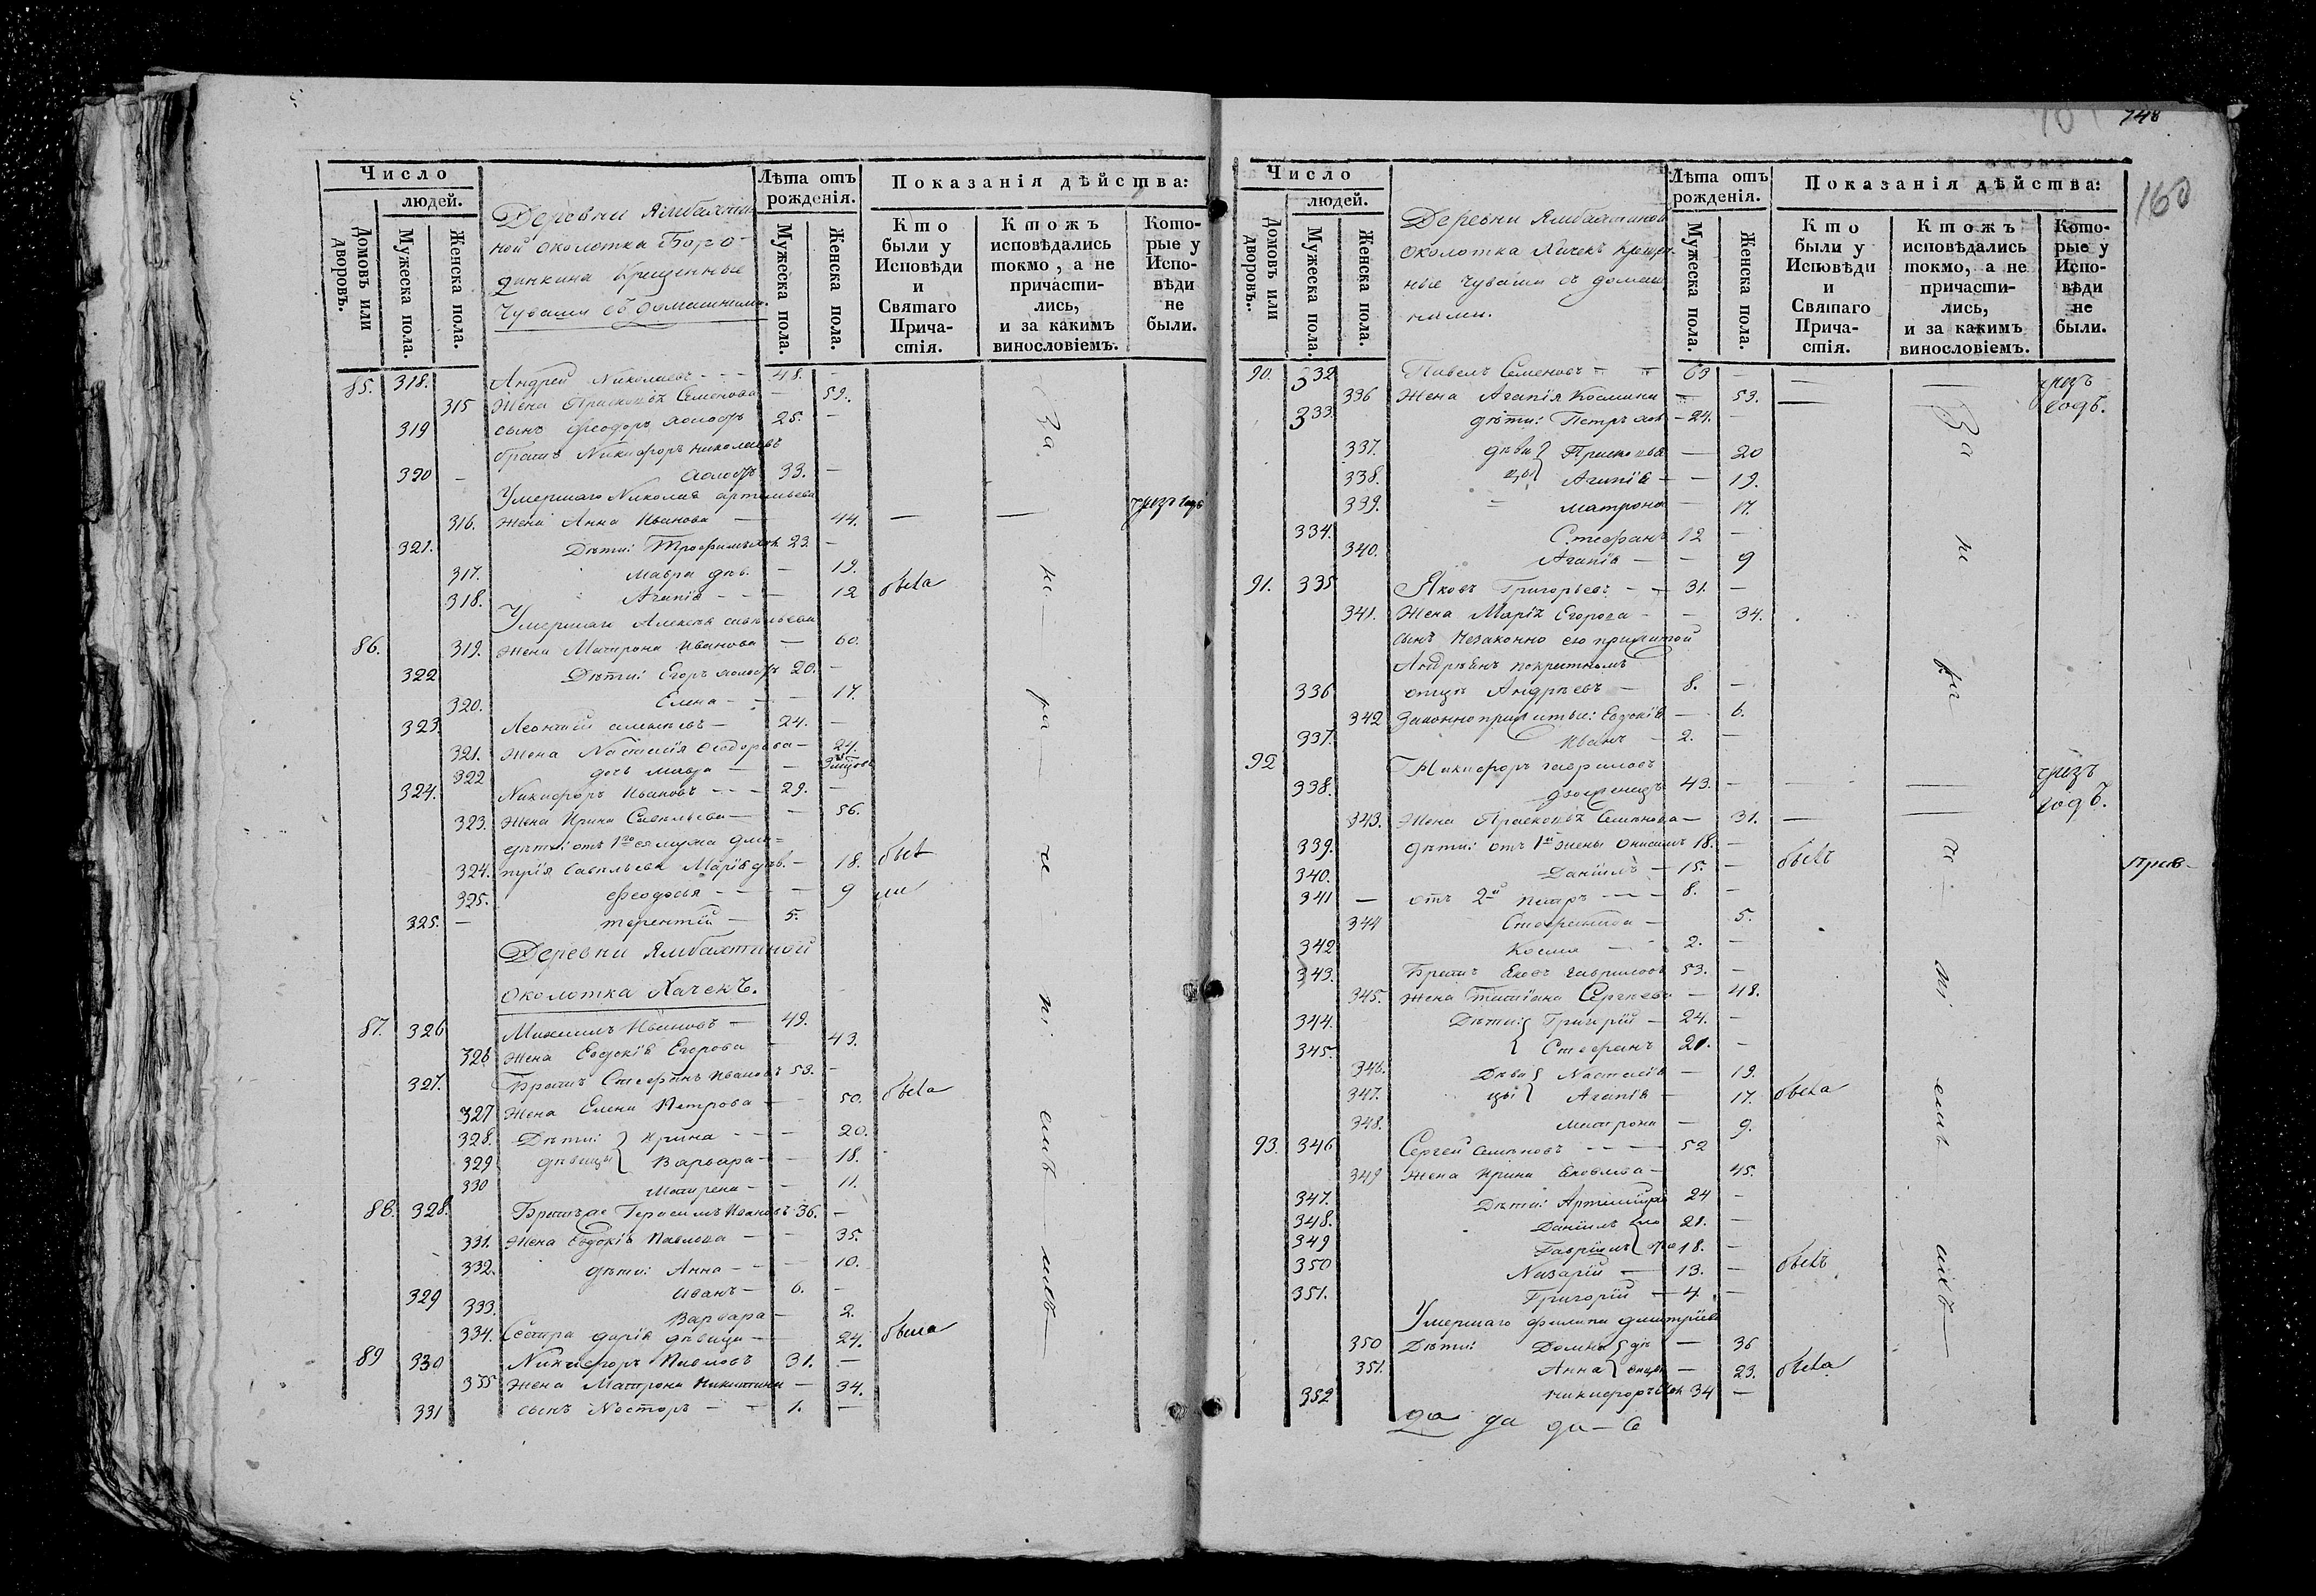 Число
людей.
Домовъ или дворовъ.
Мужеска пола.
Женска пола.
Деревни Ямбахтин
ной околотка Боро-
динкина Крещенные
Чуваши съ домашними.
Лѣта отъ рожденія.
Мужеска пола.
Женска пола.
Показанія дѣйства:
Кто были у Исповѣди и Святаго Причастія.
Ктожъ исповѣдались токмо, а не причастились, и за какимъ винословіемъ.
Которые у Исповѣди не были.
85. 318. Андрей Николаевъ - - - 48. -
315 Жена Прасковья Семенова - 59.
319 сынъ Феодоръ холостъ 25. -
братъ Никифоръ Николаевъ
320 - холостъ 33. -
Умершаго Николая
316. жена Анна Иванова - 44. - - чрезъ годъ
321. Дѣти: Трофимъ хол. 23. -
317. Мавра дѣв. - 19.
318. Агапія - - - 12 была
Умершаго Алексѣя савельева
86. 319. жена Матрона Иванова - 60.
322 Дѣти: Егоръ холостъ 20. -
320. Елена - - 17.
323 Леонтий - 24. -
321. Жена Настасія Феодорова - 24.
322 дочь Мавра - -
324. Никифоръ Ивановъ - - - 29. -
323. Жена Ирина Савельева - - 56.
дѣти: отъ 1го ея мужа дми-
324. трія савельева Марія дѣв. - 18. был
325. Феодосья - - - 9 ли
325. - терентій - 5.
Деревни Ямбахтиной
околотка Хачекъ.
87. 326 Михаилъ Ивановъ - 49.
326 Жена Евдокія Егорова - 43.
327. Братъ Стефанъ Ивановъ 53. -
327 Жена Елена Петрова - - 50. была
328. Дѣти: Ирина - - - 20.
329 дѣвицы Варвара - - 18.
330 Матрена - - 11.
88. 328. Братъ же Герасимъ Ивановъ 36. -
331. Жена Евдокія Павлова - - 35.
332. дѣти: Анна - - - 10.
329 Иванъ - 6. -
333. Варвара - 2.
334. Сестра дарія дѣвица - 24. была
89 330 Никифоръ Павловъ 31. -
335 Жена Матрона Никитина - 34.
331 сынъ Несторъ - - 1. -
За не ра че ні емъ
748
160
Число
людей.
Домовъ или дворовъ.
Мужеска пола.
Женска пола.
Деревни Ямбахтиной
околотка Хачекъ крещен-
ные чуваши съ домаш-
ними.
Лѣта отъ рожденія.
Мужеска пола.
Женска пола.
Показанія дѣйства:
Кто были у Исповѣди и Святаго Причастія.
Ктожъ исповѣдались токмо, а не причастились, и за какимъ винословіемъ.
Которые у Исповѣди не были.
90. 332 Павелъ Семеновъ - - 63 - - - чрезъ
336 Жена Агапія Космина - 53. - - годъ.
333. дѣти: Петръ хол - 24. -
337. дѣви Прасковья - 20
338. цы Агапія - - 19.
339. матрона - 17.
334. Стефанъ 12 -
340. Агапія - - 9
91. 335 Яковъ Григорьевъ - - 31. -
341. Жена Марія Егорова - - 34.
сынъ незаконно ею прижитой
Андрѣянъ по крестномъ
336 отцѣ Андрѣевъ - 8. -
342 Законно прижитыи: Евдокія - 6.
337. Иванъ - 2. -
92 Никифоръ гавриловъ чрезъ
338. двоеженецъ 43. - - - годъ.
343. Жена Прасковья Семенова - 31. - -
339. дѣти: отъ 1й жены Онисимъ 18. -
340. Даніилъ - 15. - былъ
341 - отъ 2й Петръ - - - 8. -
344 Стефанида - 5.
342 Косма - - 2. -
343. Братъ Яковъ гавриловъ 53. -
345. Жена Татіана Сергѣева - 48.
344. Дѣти: Григорій - 24. -
345. Стефанъ 21. -
346. Дѣви Настасія - 19.
347. цы Агапія - 17. была
348. матрона - 9.
93. 346 Сергей Семеновъ - - - - 52
349 Жена Ирина Яковлева - 45.
347. Дѣти: 24 -
348. Даніилъ хо 21. -
349 Гавріилъ 18. -
350 Назарій - 13. - былъ
351. Григорій - 4. -
Умершаго филипа дмитріева
350 Дѣти: Домна дѣ - 36
351. Анна вицы - 23. была
352 Никифоръ хол 34 -
За не ра че ні емъ